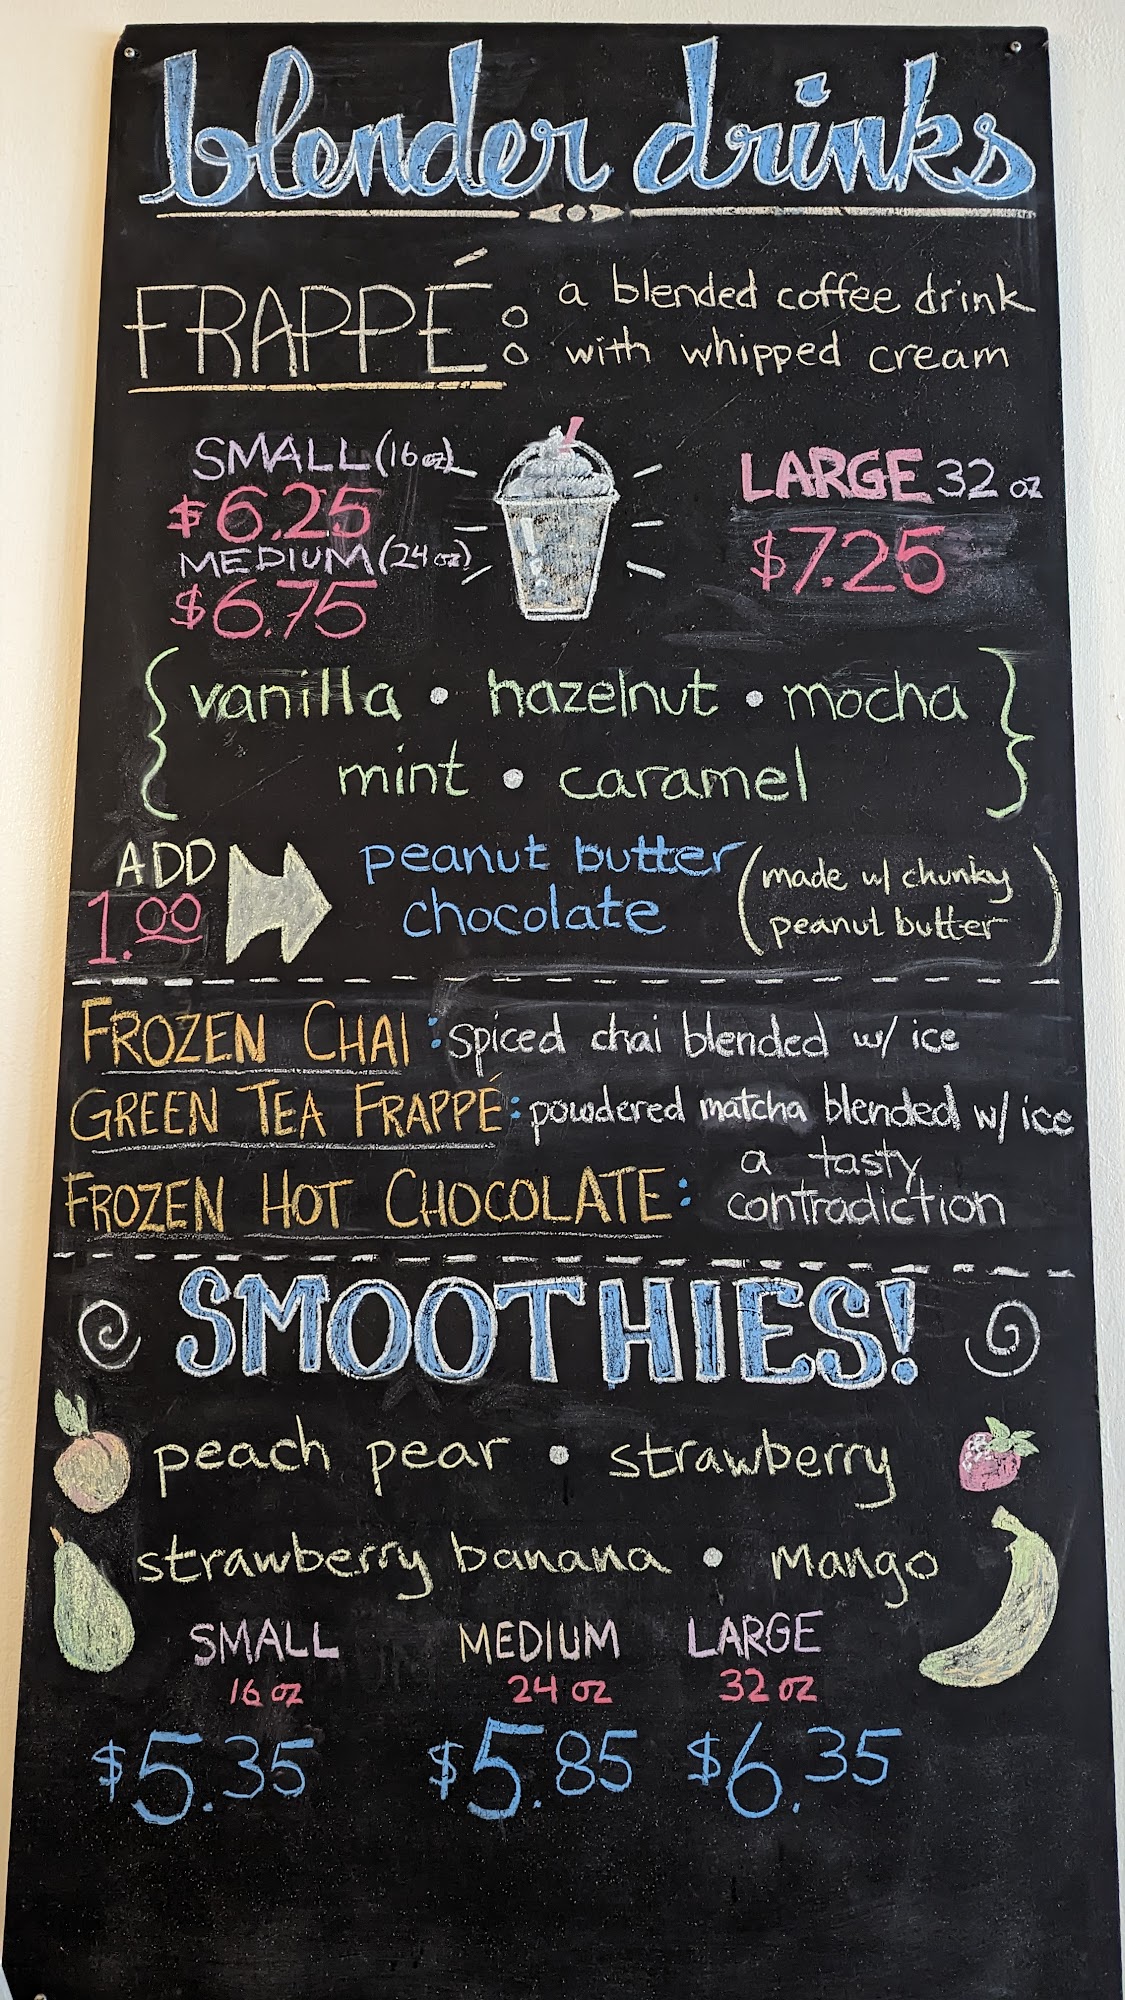 blender drinks
FRAPPÉ: a blended coffee drink
with whipped cream
SMALL (16 oz)
$6.25
MEDIUM (24 oz)
$6.75
LARGE 32 oz
$7.25
{ vanilla • hazelnut • mocha
mint • caramel }
ADD
1.00
peanut butter
chocolate
(made w/ chunky
peanut butter)
FROZEN CHAI: spiced chai blended w/ ice
GREEN TEA FRAPPÉ: powdered matcha blended w/ ice
FROZEN HOT CHOCOLATE: a tasty
contradiction
SMOOTHIES!
peach pear • strawberry
strawberry banana • mango
SMALL MEDIUM LARGE
16 oz 24 oz 32 oz
$5.35 $5.85 $6.35